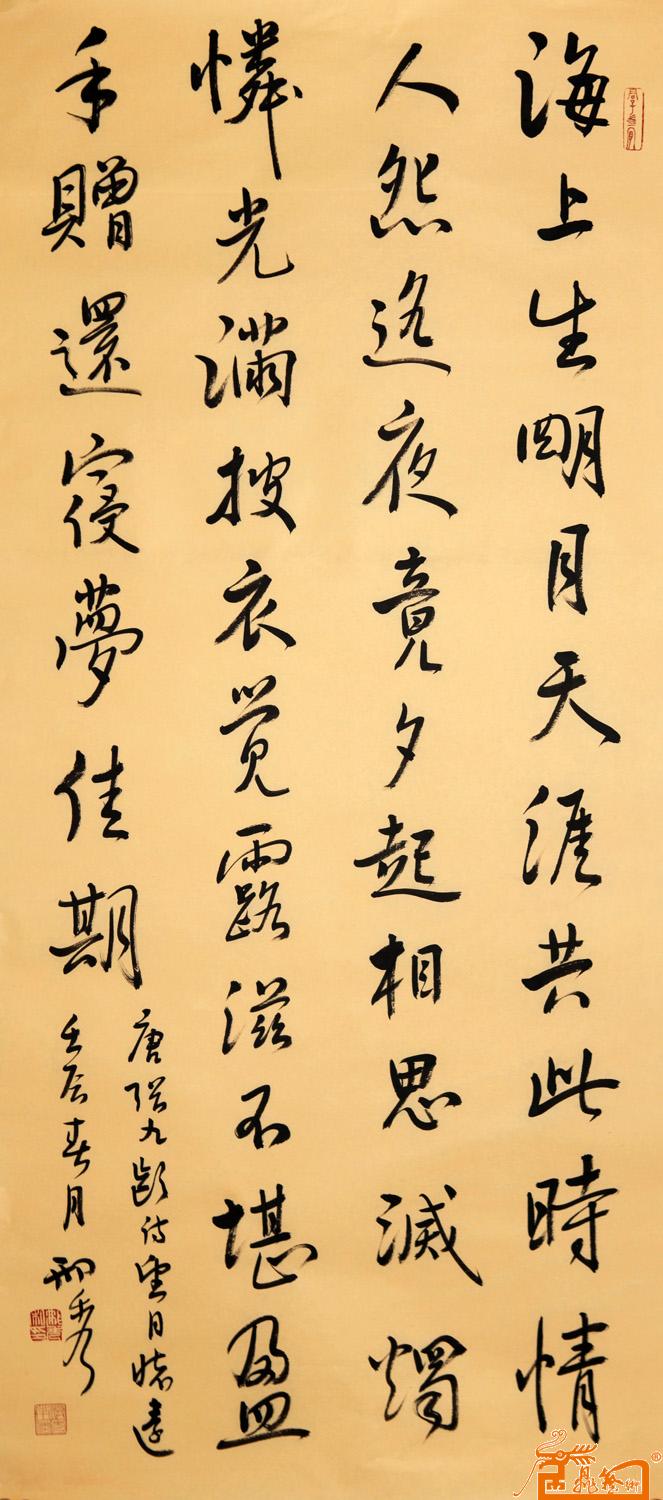 海上生明月天涯共此時情
人怨遥夜竟夕起相思滅燭
憐光滿披衣觉露滋不堪盈
手贈還寢夢佳期
唐張九齡诗望月懷遠
壬辰春月